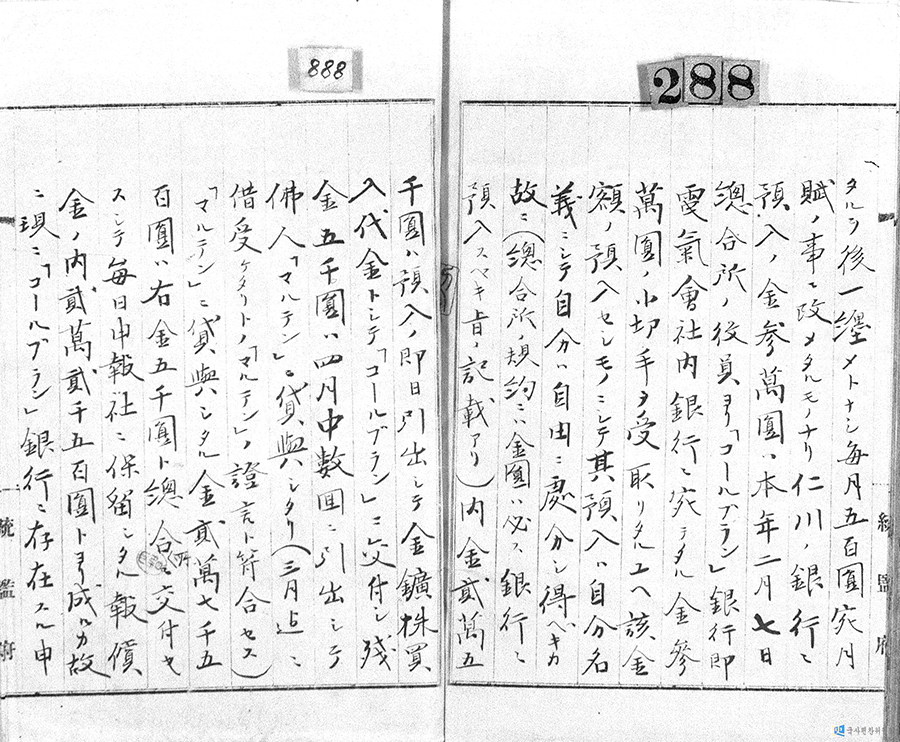 888
288
タルヲ後一纏メトナシ毎月五百圓宛月
賦ノ事ニ改メタルモノナリ仁川ノ銀行ニ
預入ノ金参萬圓ハ本年二月七日
總合所ノ役員ヨリ「コールブラン」銀行即
電氣會社内銀行ニ宛テタル金參
萬圓ノ小切手ヲ受取リタルユヘ該金
額ノ預入セシモノニシテ其預入ハ自分名
義ニシテ自分ハ自由ニ處分シ得ベキカ
故ニ(總合所ノ規約ニハ金圓ハ必ス銀行ニ
預入スベキ旨ノ記載アリ)内金貳萬五
千圓ハ預入ノ即日引出シテ金鑛株買
入代金トシテ「コールブラン」ニ交付シ残
金五千圓ハ四月中数回ニ引出シテ
佛人「マルテン」ニ貸與シタリ(三月迄ニ
借受ケタリトノ「マルテン」ノ證言ト符合セス)
「マルテン」ニ貸與シタル金貳萬七千五
百圓ハ右金五千圓ト總合 交付セ
スシテ毎日申報社ニ保留シタル報償
金ノ内貳萬貳千五百圓トヨリ成ルカ故
ニ現ニ「コールブラン」銀行ニ存在スル申
統監府
統監府
국사편찬위